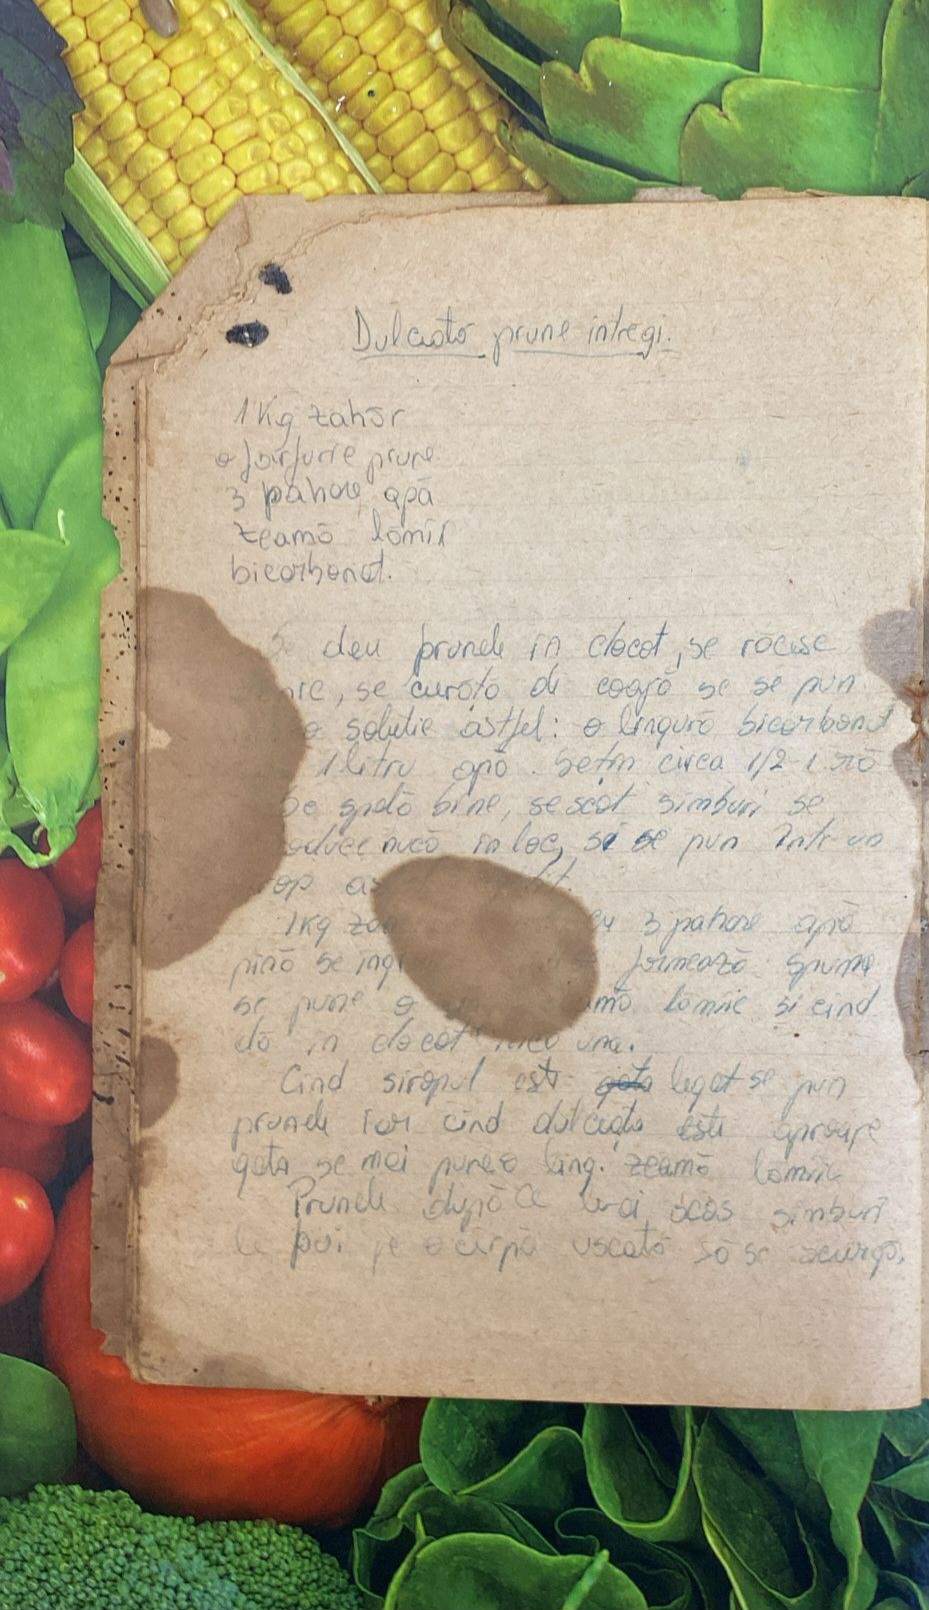 Dulceață prune întregi.
1 Kg zahăr
o farfurie prune
3 pahare apă
zeamă lămîi
bicarbonat.
dau prunele in clocot, se răcesc
se curăță de coajă se se pun
o soluție astfel: o lingură bicarbonat
1 litru apă. Se țin circa 1/2 - 1
spală bine, se scot simburi se
nucă in loc, si se pun într-un
1 Kg cu 3 pahare apă
pină se formează spuma
se pune o lămîie și cind
dă in clocot inca una.
Cind siropul este legat se pun
prunele iar cind dulceața este aproape
gata se mai pune o ling. zeamă lămîie
Prunele după ce le-ai scos simburi
le pui pe o cirpă uscată să se scurgă.